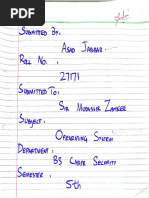 SUBMITTED BY:
ASAD JABBAR
ROLL NO. :
27171
SUBMITTED TO:
SIR MUDASSIR ZAHEER
SUBJECT:
OPERATING SYSTEM
DEPARTMENT:
BS CYBER SECURITY
SEMESTER :
5th